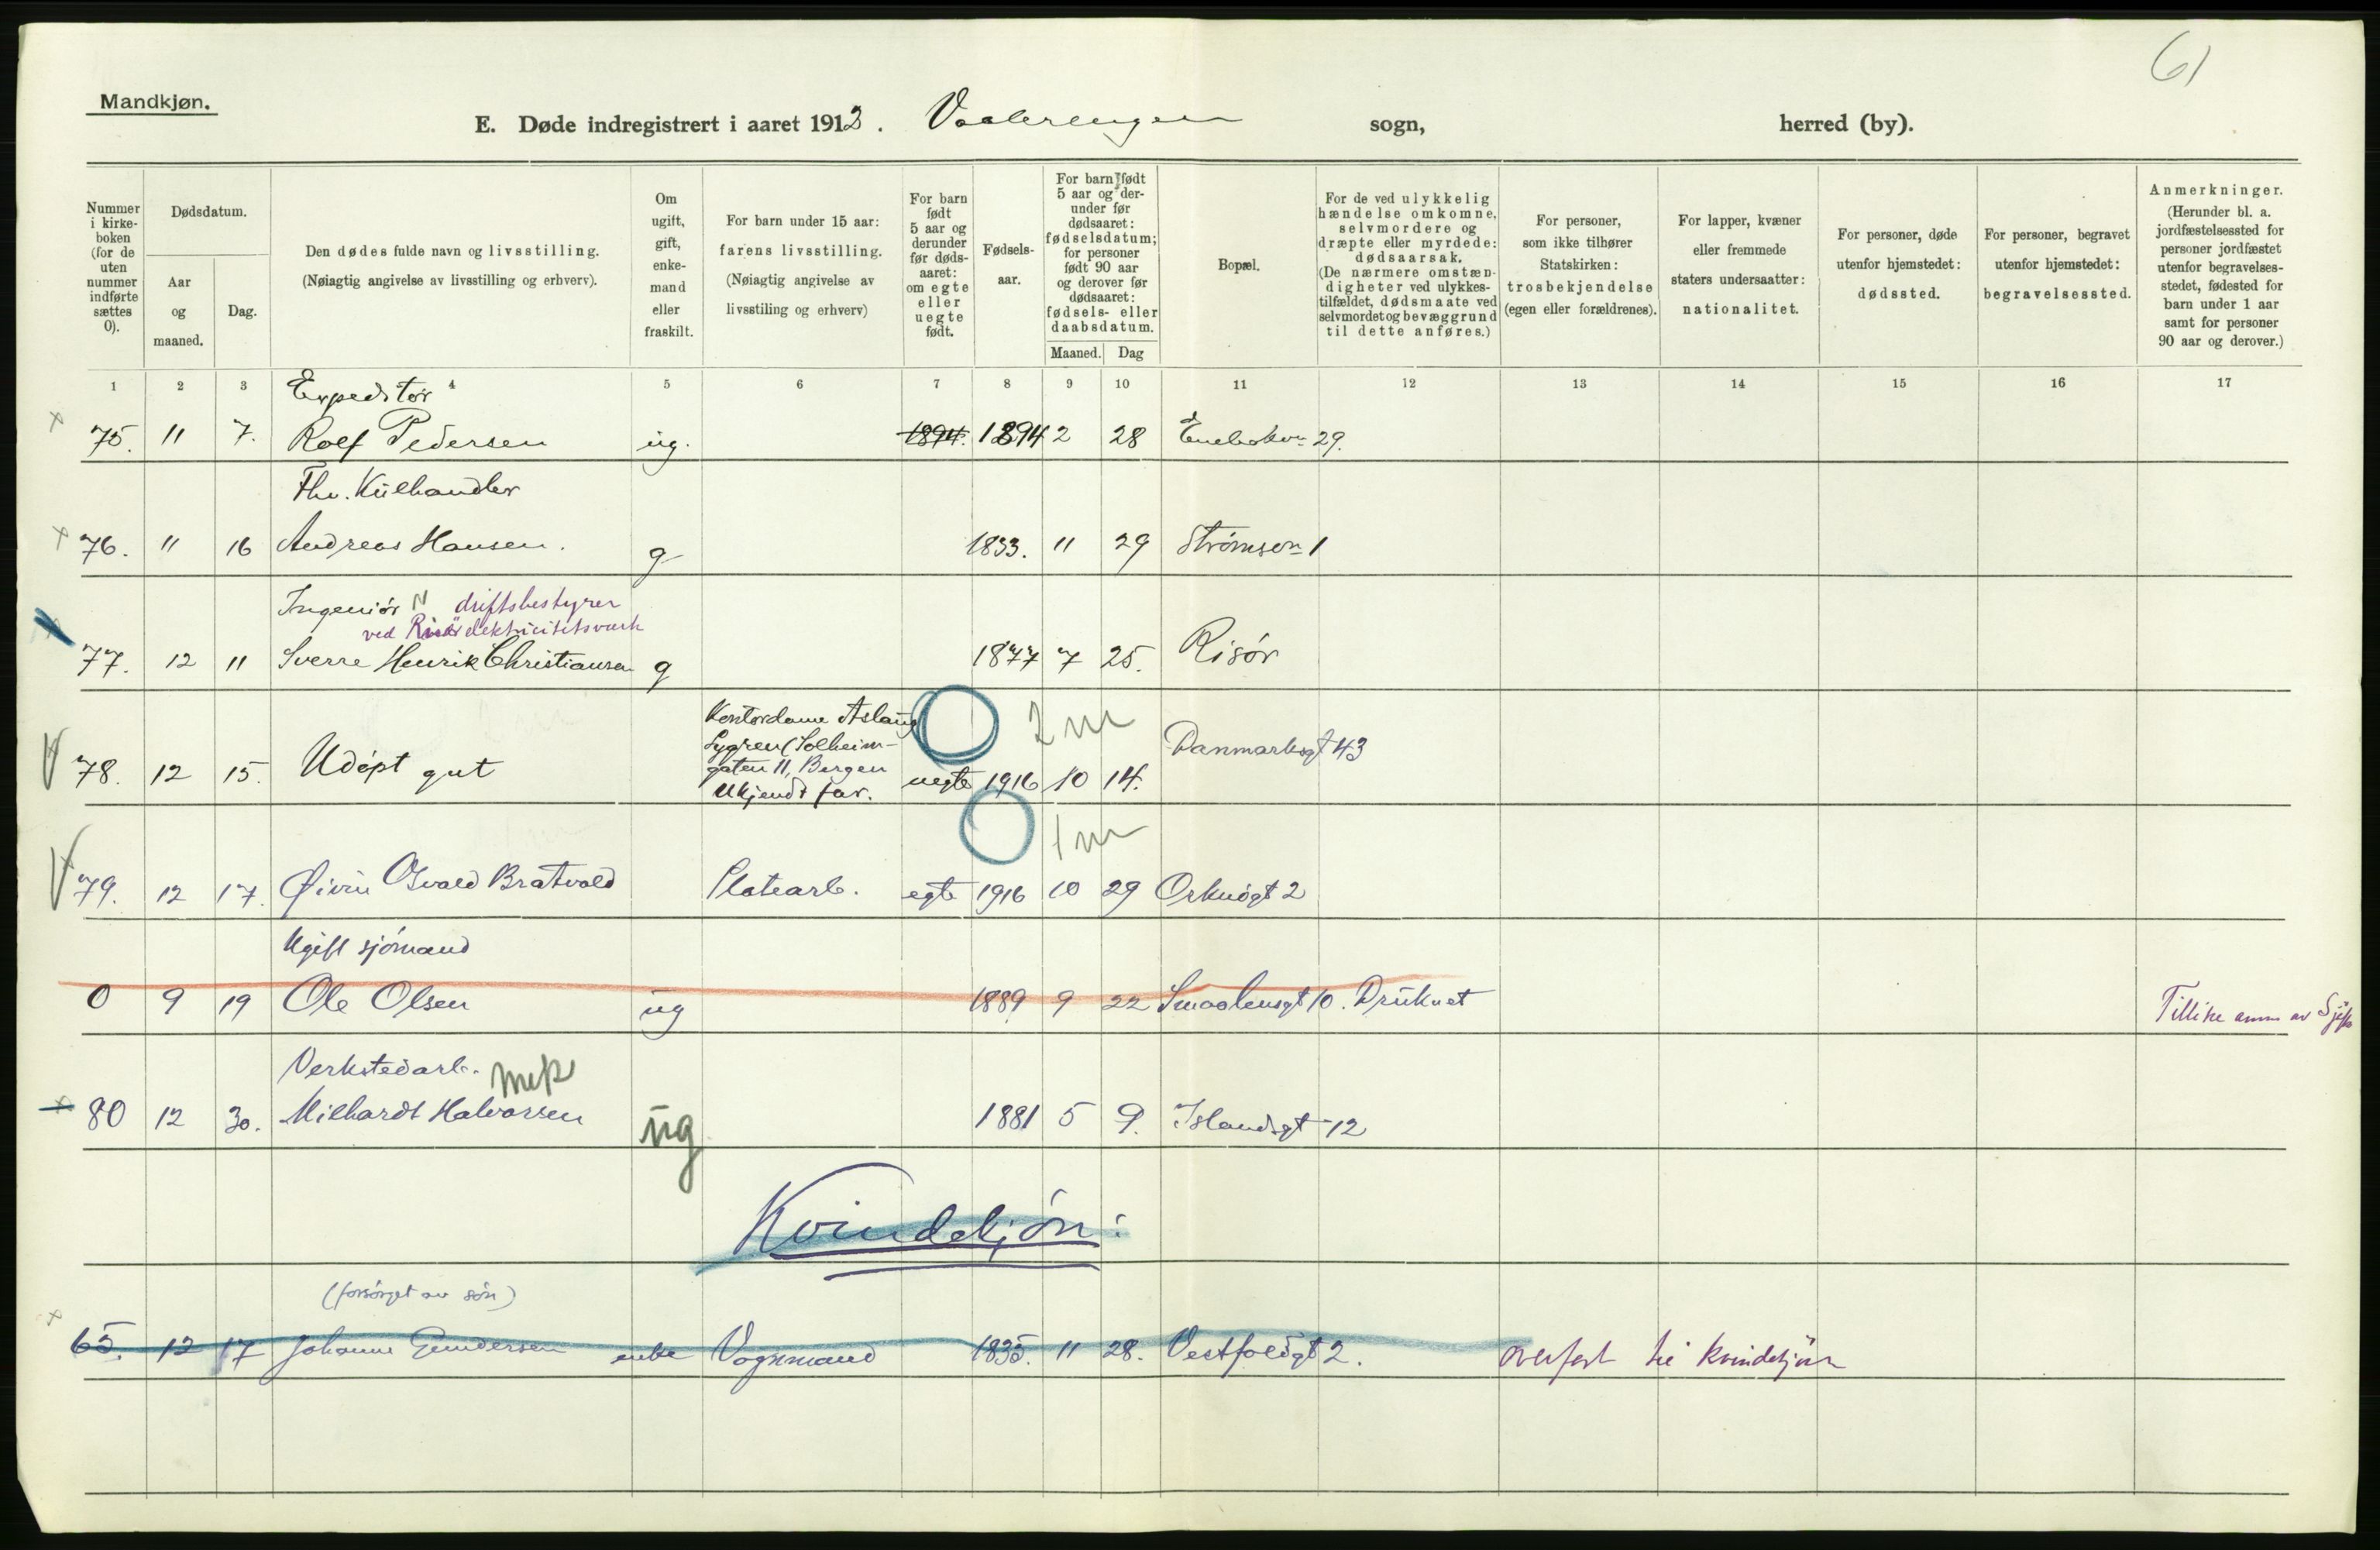 61
Mandkjøn.
E. Døde indregistrert i aaret 191 . Vaalerengen sogn, herred (by).
Nummer i kirkeboken (for de uten nummer indførte sættes 0).
Dødsdatum.
Aar og maaned.
Dag.
Den dødes fulde navn og livsstilling.
(Nøiagtig angivelse av livsstilling og erhverv).
Om ugift, gift, enkemand eller fraskilt.
For barn under 15 aar:
farens livsstilling.
(Nøiagtig angivelse av livsstiling og erhverv)
For barn født 5 aar og derunder før dødsaaret: om egte eller uegte født.
Fødselsaar.
For barn født 5 aar og derunder før dødsaaret: fødselsdatum; for personer født 90 aar og derover før dødsaaret: fødsels- eller daabsdatum.
Maaned. Dag
Bopæl.
For de ved ulykkelig hændelse omkomne, selvmordere og dræpte eller myrdede: dødsaarsak.
(De nærmere omstændigheter ved ulykkestilfældet, dødsmaate ved selvmordet og bevæggrund til dette anføres.)
For personer, som ikke tilhører Statskirken: trosbekjendelse (egen eller forældrenes).
For lapper, kvæner eller fremmede staters undersaatter: nationalitet.
For personer, døde utenfor hjemstedet: dødssted.
For personer, begravet utenfor hjemstedet: begravelsessted.
Anmerkninger.
(Herunder bl. a. jordfæstelsessted for personer jordfæstet utenfor begravelsesstedet, fødested for barn under 1 aar samt for personer 90 aar og derover.)
1 2 3 4 5 6 7 8 9 10 11 12 13 14 15 16 17
Expeditør
75. 11 7. Rolf Pedersen ug. 1894. 1894 2 28 Enebakvn 29.
Fhv. Kulhandler
76. 11 16 Andreas Hansen. g 1833. 11 29 Strømsvn 1
Ingeniör driftsbestyrer
ved Risör elektricitetsverk
77. 12 11 Sverre Henrik Christiansen g 1877 7 25. Risör
Kontordame Aslaug 2 m
Sygren (Solheim-
gaten 11, Bergen
Ukjendt far.
78. 12 15. Udöpt gut uegte 1916 10 14. Danmarksgt 43
1 m
79. 12 17. Øivin Osvald Bratvold Platearb. egte 1916 10 29 Orknögt 2
Ugift sjömand
0 9 19 Ole Olsen ug 1889 9 22 Smaalensgt 10. Druknet Tillike anm av
Verkstedarb. mek
80 12 30. Milhardt Halvorsen ug 1881 5 9. Islandsgt 12
Kvindekjön:
(forsörget av sön)
65. 12 17 Johanne Gundersen enke Vognmand 1835. 11 28. Vestfoldgt 2. overført til kvindekjön